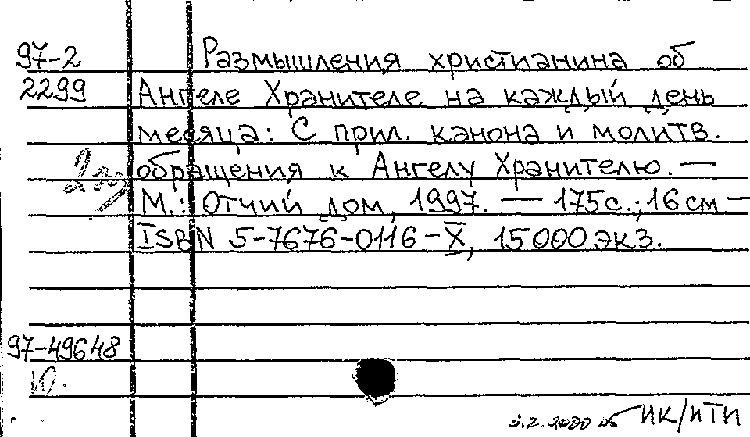 97-2 Размышления христианина об
2299 Ангеле Хранителе на каждый день
месяца: С прил. канона и молитв.
обращения к Ангелу Хранителю. —
М.: Отчий дом, 1997. — 175с.; 16 см —
ISBN 5-7676-0116-X, 15000 экз.
97-49648
Ю.
3.2.2000 ИК/ИТИ